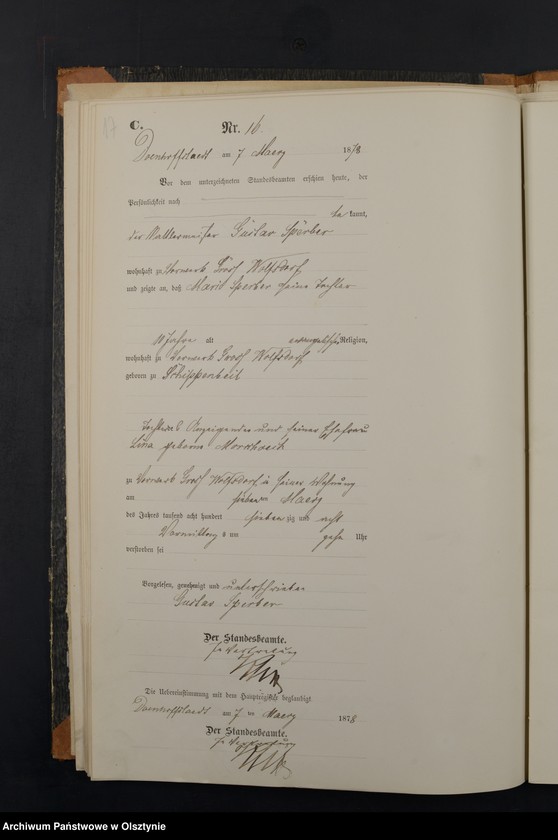 17
C.
Nr. 16.
Doenhoffstaedt am 7 Maerz 1878
Vor dem unterzeichneten Standesbeamten erschien heute, der
Persönlichkeit nach
bekannt,
der Gustav Sperber
wohnhaft zu Vorwerk Groß Wolfsdorf
und zeigte an, daß Marie Sperber seine Tochter
alt evangelischer Religion,
wohnhaft zu Vorwerk Groß Wolfsdorf
geboren zu Schippenbeil
Tochter des Anzeigenden und seiner Ehefrau
Lina geborne
zu Vorwerk Groß Wolfsdorf in seiner Wohnung
am sieben ten Maerz
des Jahres tausend acht hundert sieben zig und acht
Vormittag s um zehn Uhr
verstorben sei
Vorgelesen, genehmigt und unterschrieben
Gustav Sperber
Der Standesbeamte.
In Vertretung
Die Uebereinstimmung mit dem Hauptregister beglaubigt
Doenhoffstaedt am 7 ten Maerz 1878
Der Standesbeamte.
In Vertretung
Archiwum Państwowe w Olsztynie